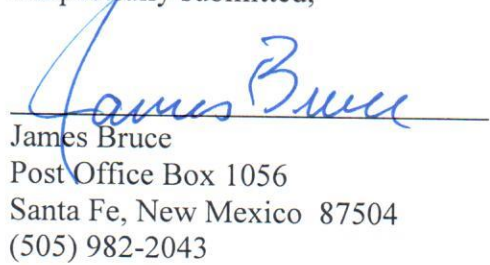 submitted,
James Bruce
James Bruce
Post Office Box 1056
Santa Fe, New Mexico 87504
(505) 982-2043